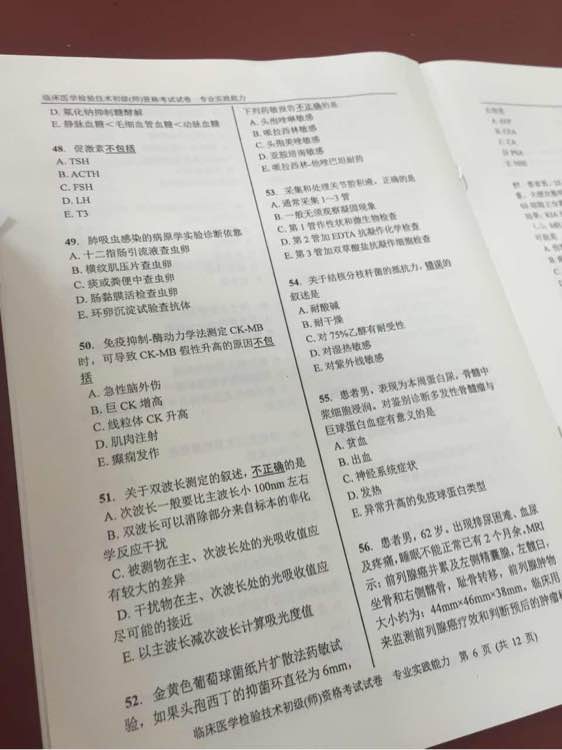 临床医学检验技术初级(师)资格考试试卷 专业实践能力
D. 氟化钠抑制糖酵解
E. 静脉血糖＜毛细血管血糖＜动脉血糖
48. 促激素不包括
A. TSH
B. ACTH
C. FSH
D. LH
E. T3
49. 肺吸虫感染的病原学实验诊断依靠
A. 十二指肠引流液查虫卵
B. 横纹肌压片查虫卵
C. 痰或粪便中查虫卵
D. 肠黏膜活检查虫卵
E. 环卵沉淀试验查抗体
50. 免疫抑制-酶动力学法测定 CK-MB
时，可导致 CK-MB 假性升高的原因不包
括
A. 急性脑外伤
B. 巨 CK 增高
C. 线粒体 CK 升高
D. 肌肉注射
E. 癫痫发作
51. 关于双波长测定的叙述，不正确的是
A. 次波长一般要比主波长小 100nm 左右
B. 双波长可以消除部分来自标本的非化
学反应干扰
C. 被测物在主、次波长处的光吸收值应
有较大的差异
D. 干扰物在主、次波长处的光吸收值应
尽可能的接近
E. 以主波长减次波长计算吸光度值
52. 金黄色葡萄球菌纸片扩散法药敏试
验，如果头孢西丁的抑菌环直径为 6mm，
下列药敏报告不正确的是
A. 头孢唑啉敏感
B. 哌拉西林敏感
C. 头孢美唑敏感
D. 亚胺培南敏感
E. 哌拉西林-他唑巴坦耐药
53. 采集和处理关节腔积液，正确的是
A. 通常采集 1～3 管
B. 一般无须观察凝固现象
C. 第 1 管作性状和微生物检查
D. 第 2 管加 EDTA 抗凝作化学检查
E. 第 3 管加双草酸盐抗凝作细胞检查
54. 关于结核分枝杆菌的抵抗力，错误的
叙述是
A. 耐酸碱
B. 耐干燥
C. 对 75%乙醇有耐受性
D. 对湿热敏感
E. 对紫外线敏感
55. 患者男，表现为本周蛋白尿，骨髓中
浆细胞浸润。对鉴别诊断多发性骨髓瘤与
巨球蛋白血症有意义的是
A. 贫血
B. 出血
C. 神经系统症状
D. 发热
E. 异常升高的免疫球蛋白类型
56. 患者男，62 岁。出现排尿困难、血尿
及疼痛，睡眠不能正常已有 2 个月余，MRI
示，前列腺癌并累及左侧精囊腺，左髋臼，
坐骨和右侧髂骨，耻骨转移，前列腺肿物
大小约为：44mm×46mm×38mm。临床用
来监测前列腺癌疗效和判断预后的肿瘤
临床医学检验技术初级(师)资格考试试卷 专业实践能力 第 6 页 (共 12 页)